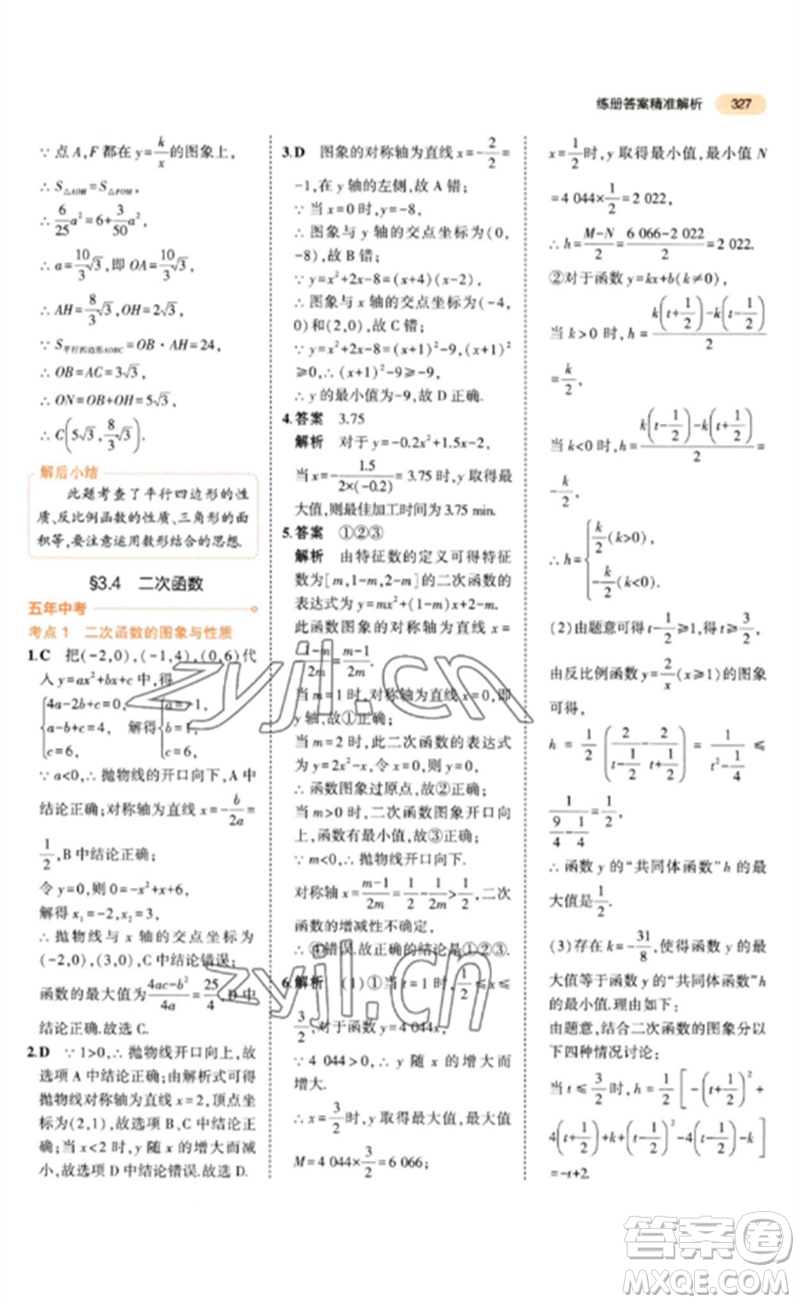 练册答案精准解析 327
∵ 点 A,F 都在 y=k/x 的图象上,
∴ S△AOH=S△FOM,
∴ 6/25 a²=6+3/50 a²,
∴ a=10/3 √3,即 OA=10/3 √3,
∴ AH=8/3 √3,OH=2√3,
∵ S平行四边形AOBC=OB·AH=24,
∴ OB=AC=3√3,
∴ ON=OB+OH=5√3,
∴ C(5√3, 8/3 √3).
解后小结
此题考查了平行四边形的性
质、反比例函数的性质、三角形的面
积等,要注意运用数形结合的思想.
§3.4 二次函数
五年中考
考点1 二次函数的图象与性质
1.C 把(-2,0),(-1,4),(0,6)代
入 y=ax²+bx+c 中,得
{4a-2b+c=0, a-b+c=4, c=6, 解得{a=-1, b=1, c=6,
∵ a<0,∴ 抛物线的开口向下,A 中
结论正确;对称轴为直线 x=-b/2a=
1/2,B 中结论正确;
令 y=0,则-x²+x+6,
解得 x₁=-2,x₂=3,
∴ 抛物线与 x 轴的交点坐标为
(-2,0),(3,0),C 中结论错误;
函数的最大值为(4ac-b²)/4a=25/4,D 中
结论正确.故选 C.
2.D ∵ 1>0,∴ 抛物线开口向上,故
选项 A 中结论正确;由解析式可得
抛物线对称轴为直线 x=2,顶点坐
标为(2,1),故选项 B、C 中结论正
确;当 x<2 时,y 随 x 的增大而减
小,故选项 D 中结论错误.故选 D.
3.D 图象的对称轴为直线 x=-2/2=
-1,在 y 轴的左侧,故 A 错;
∵ 当 x=0 时,y=-8,
∴ 图象与 y 轴的交点坐标为(0,
-8),故 B 错;
∵ y=x²+2x-8=(x+4)(x-2),
∴ 图象与 x 轴的交点坐标为(-4,
0)和(2,0),故 C 错;
∵ y=x²+2x-8=(x+1)²-9,(x+1)²
≥0,∴ (x+1)²-9≥-9,
∴ y 的最小值为-9,故 D 正确.
4.答案 3.75
解析 对于 y=-0.2x²+1.5x-2,
当 x=-1.5/(2×(-0.2))=3.75 时,y 取得最
大值,则最佳加工时间为 3.75 min.
5.答案 ①②③
解析 由特征数的定义可得特征
数为[m,1-m,2-m]的二次函数的
表达式为 y=mx²+(1-m)x+2-m.
此函数图象的对称轴为直线 x=
-(1-m)/2m=(m-1)/2m,
当 m=1 时,对称轴为直线 x=0,即
y 轴,故①正确;
当 m=2 时,此二次函数的表达式
为 y=2x²-x,
∴ 函数图象过原点,故②正确;
当 m>0 时,二次函数图象开口向
上,函数有最小值,故③正确;
∵ m<0,∴ 抛物线开口向下.
对称轴为(m-1)/2m=1/2-1/2m>1/2,二次
函数的增减性不确定,
∴ ④错误.故正确的结论是①②③.
6.解析 (1)①当 t=1 时,1/2≤x≤
3/2,对于函数 y=4 044x,
∵ 4 044>0,∴ y 随 x 的增大而
增大.
∴ x=3/2时,y 取得最大值,最大值
M=4 044×3/2=6 066;
x=1/2时,y 取得最小值,最小值 N
=4 044×1/2=2 022,
∴ h=(M-N)/2=(6 066-2 022)/2=2 022.
②对于函数 y=kx+b(k≠0),
当 k>0 时,h=(k(t+1/2)-k(t-1/2))/2=
k/2,
当 k<0 时,h=(k(t-1/2)-k(t+1/2))/2=
-k/2,
∴ h={k/2(k>0), -k/2(k<0).
(2)由题意可得 t-1/2≥1,∴ t≥3/2,
由反比例函数 y=2/x(x≥1)的图象
可得
h=1/2(2/(t-1/2)-2/(t+1/2))=1/(t²-1/4)≤
1/(9/4-1/4)=1/2,
∴ 函数 y 的“共同体函数”h 的最
大值是1/2.
(3)存在 k=-31/8,使得函数 y 的最
大值等于函数 y 的“共同体函数”h
的最小值.理由如下:
由题意,结合二次函数的图象分以
下四种情况讨论:
当 t≤3/2时,h=1/2[-(t+1/2)²+
4(t+1/2)+(t-1/2)²-4(t-1/2)-k]
=-t+2.
zyjl.cn
zyjl.cn
答案卷
MXQE.COM